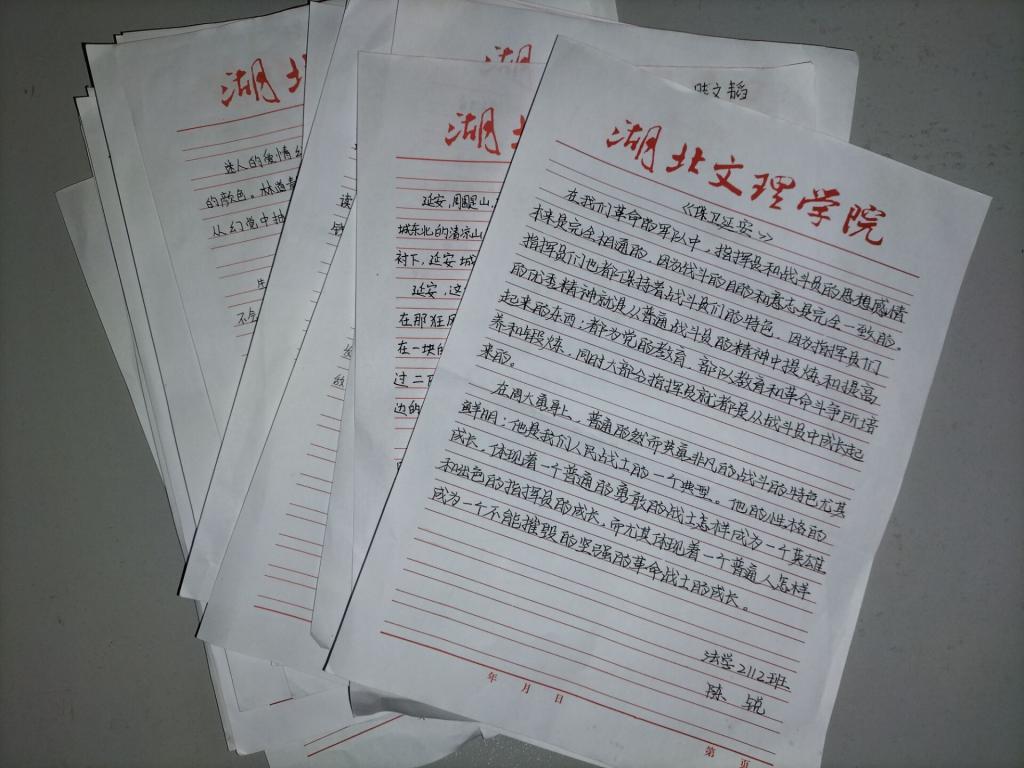 湖北文理学院
《保卫延安》
在我们革命的军队中，指挥员和战斗员的思想感情
本来是完全相通的，因为战斗的目的和意志是完全一致的。
指挥员们也都保持着战斗员们的特色，因为指挥员们
的优秀精神就是从普通战斗员的精神中提炼和提高
起来的东西；都为党的教育，部队教育和革命斗争所培
养和锻炼，同时大部分指挥员就都是从战斗员中成长起
来的。
在周大勇身上，普通的然而英勇非凡的战斗的特色尤其
鲜明；他是我们人民战士的一个典型。他的性格的
成长，体现着一个普通的勇敢的战士怎样成为一个英雄
和出色的指挥员的成长，而尤其体现着一个普通人怎样
成为一个不能摧毁的坚强的革命战士的成长。
法学2112班
陈 锐
年 月 日
第 页
湖
延安，周围是山，
城东北的清凉山
衬下，延安城
延安，这
在那狂风
在一块的
过二
边的
湖
文韬
读
湖北
迷人的爱情
的颜色。林道静
从幻觉中